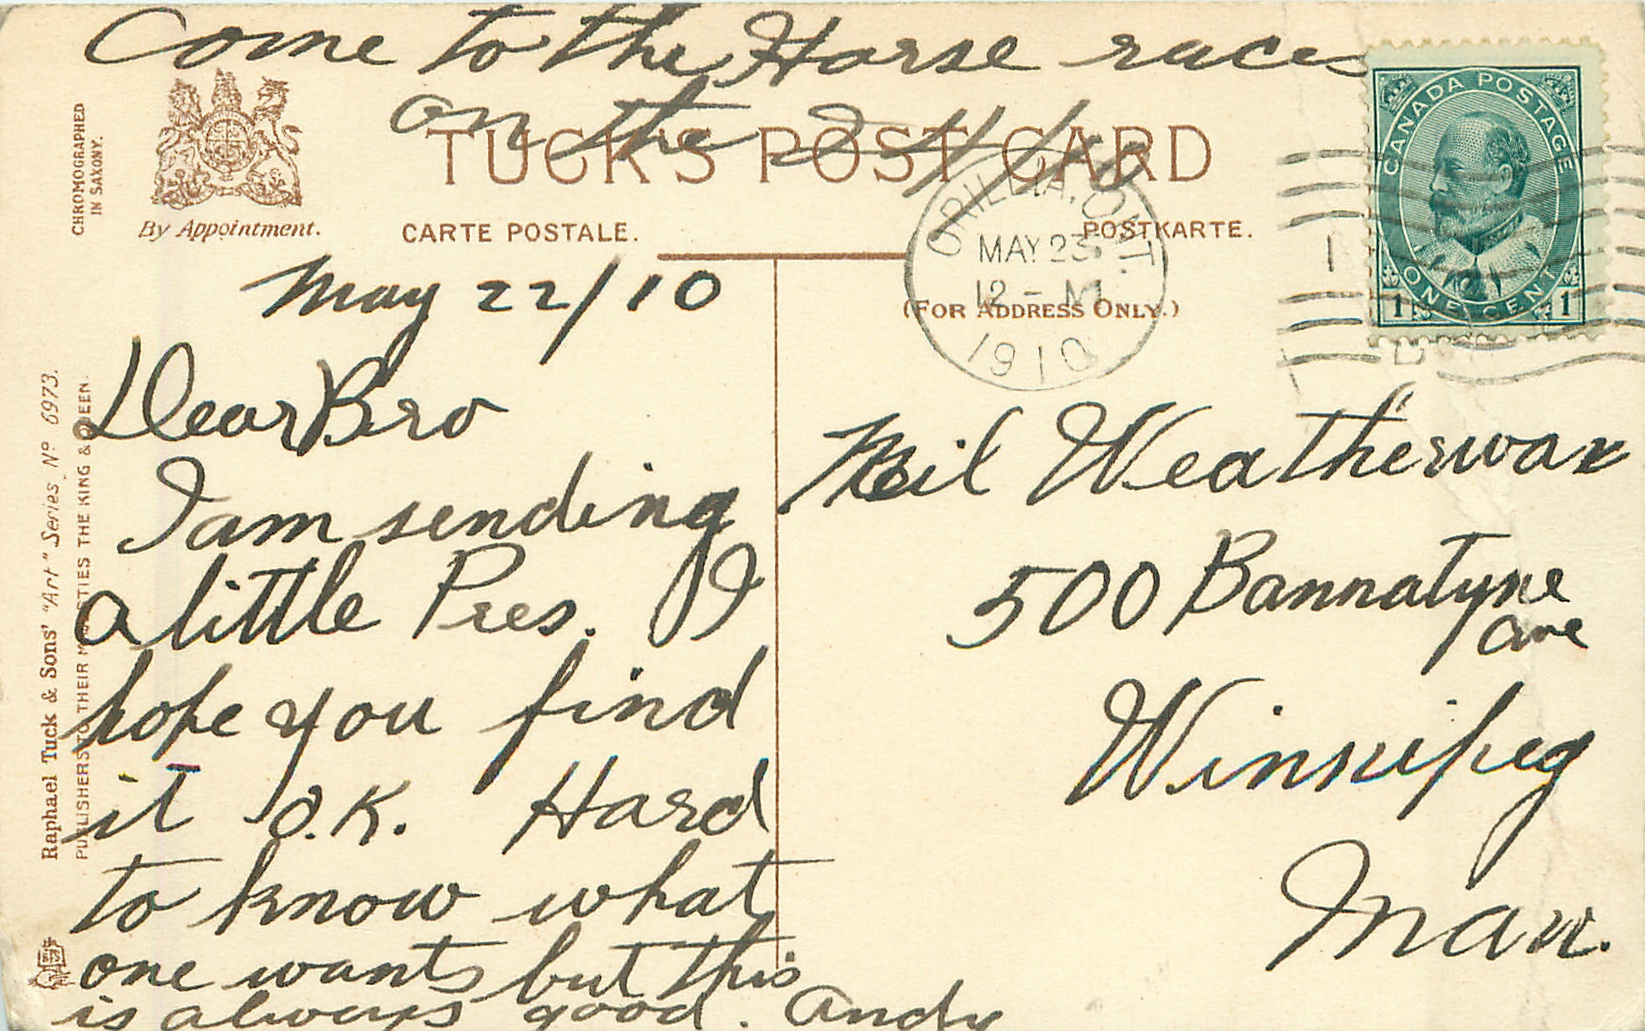 Come to the Horse races
on the 24/10
CHROMOGRAPHED
IN SAXONY.
By Appointment.
TUCK'S POST CARD
CARTE POSTALE.
POSTKARTE.
(FOR ADDRESS ONLY.)
CANADA POSTAGE
ONE CENT
1 1
ORILLIA, ONT.
MAY 23
12 - M
1910
Raphael Tuck & Sons' "Art" Series Nº 6973.
PUBLISHERS TO THEIR MAJESTIES THE KING & QUEEN.
May 22/10
Dear Bro
I am sending
a little Pres. I
hope you find
it O.K. Hard
to know what
one wants but this
is always good. Andy
Neil Weatherwax
500 Bannatyne
ave
Winnipeg
Man.